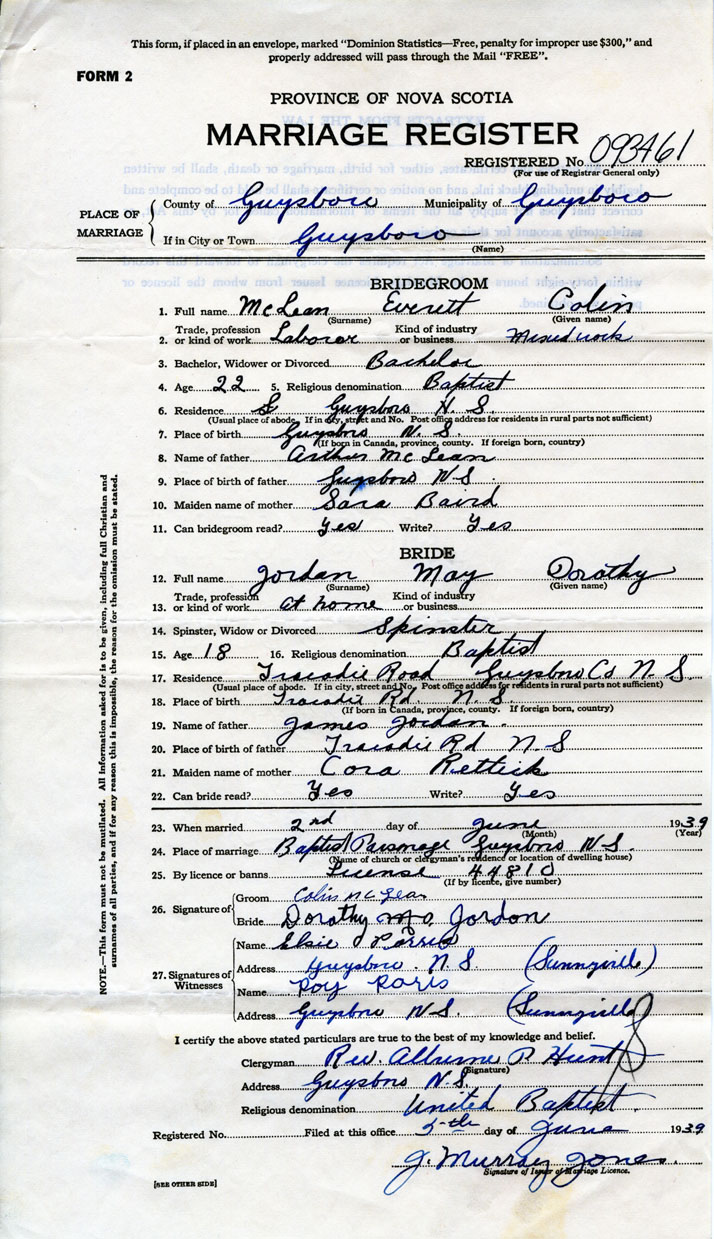 This form, if placed in an envelope, marked "Dominion Statistics—Free, penalty for improper use $300," and
properly addressed will pass through the Mail "FREE".
FORM 2
PROVINCE OF NOVA SCOTIA
MARRIAGE REGISTER
REGISTERED No. 093461
(For use of Registrar General only)
PLACE OF MARRIAGE
County of Guysboro Municipality of Guysboro
If in City or Town Guysboro
(Name)
BRIDEGROOM
1. Full name McLean Everett Colin
(Surname) (Given name)
2. Trade, profession or kind of work Laborer Kind of industry or business Mixed work
3. Bachelor, Widower or Divorced Bachelor
4. Age 22 5. Religious denomination Baptist
6. Residence Guysboro N. S.
(Usual place of abode. If in city, street and No. Post office address for residents in rural parts not sufficient)
7. Place of birth Guysboro N. S.
(If born in Canada, province, county. If foreign born, country)
8. Name of father Arthur McLean
9. Place of birth of father Guysboro N S
10. Maiden name of mother Sara Baird
11. Can bridegroom read? Yes Write? Yes
BRIDE
12. Full name Jordan May Dorothy
(Surname) (Given name)
13. Trade, profession or kind of work at home Kind of industry or business
14. Spinster, Widow or Divorced Spinster
15. Age 18 16. Religious denomination Baptist
17. Residence Tracadie Road Guysboro Co N S
(Usual place of abode. If in city, street and No. Post office address for residents in rural parts not sufficient)
18. Place of birth Tracadie Rd. N. S.
(If born in Canada, province, county. If foreign born, country)
19. Name of father James Jordan.
20. Place of birth of father Tracadie Rd N S
21. Maiden name of mother Cora Rettick
22. Can bride read? Yes Write? Yes
23. When married 2nd day of June 1939
(Month) (Year)
24. Place of marriage Baptist Parsonage Guysboro N S.
(Name of church or clergyman's residence or location of dwelling house)
25. By licence or banns License 44810
(If by licence, give number)
26. Signature of
Groom Colin McLean
Bride Dorothy Jordon
27. Signatures of Witnesses
Name Elsie Parris
Address Guysboro N. S. (Sunnyville)
Name Roy Paris
Address Guysboro N. S. (Sunnyville)
I certify the above stated particulars are true to the best of my knowledge and belief.
Clergyman Rev. P Hunt
(Signature)
Address Guysboro N. S.
Religious denomination United Baptist.
Registered No. Filed at this office 5th day of June 1939
J. Murray Jones.
Signature of Issuer of Marriage Licence.
[SEE OTHER SIDE]
NOTE.—This form must not be mutilated. All information asked for is to be given, including full Christian and
surnames of all parties, and if for any reason this is impossible, the reason for the omission must be stated.